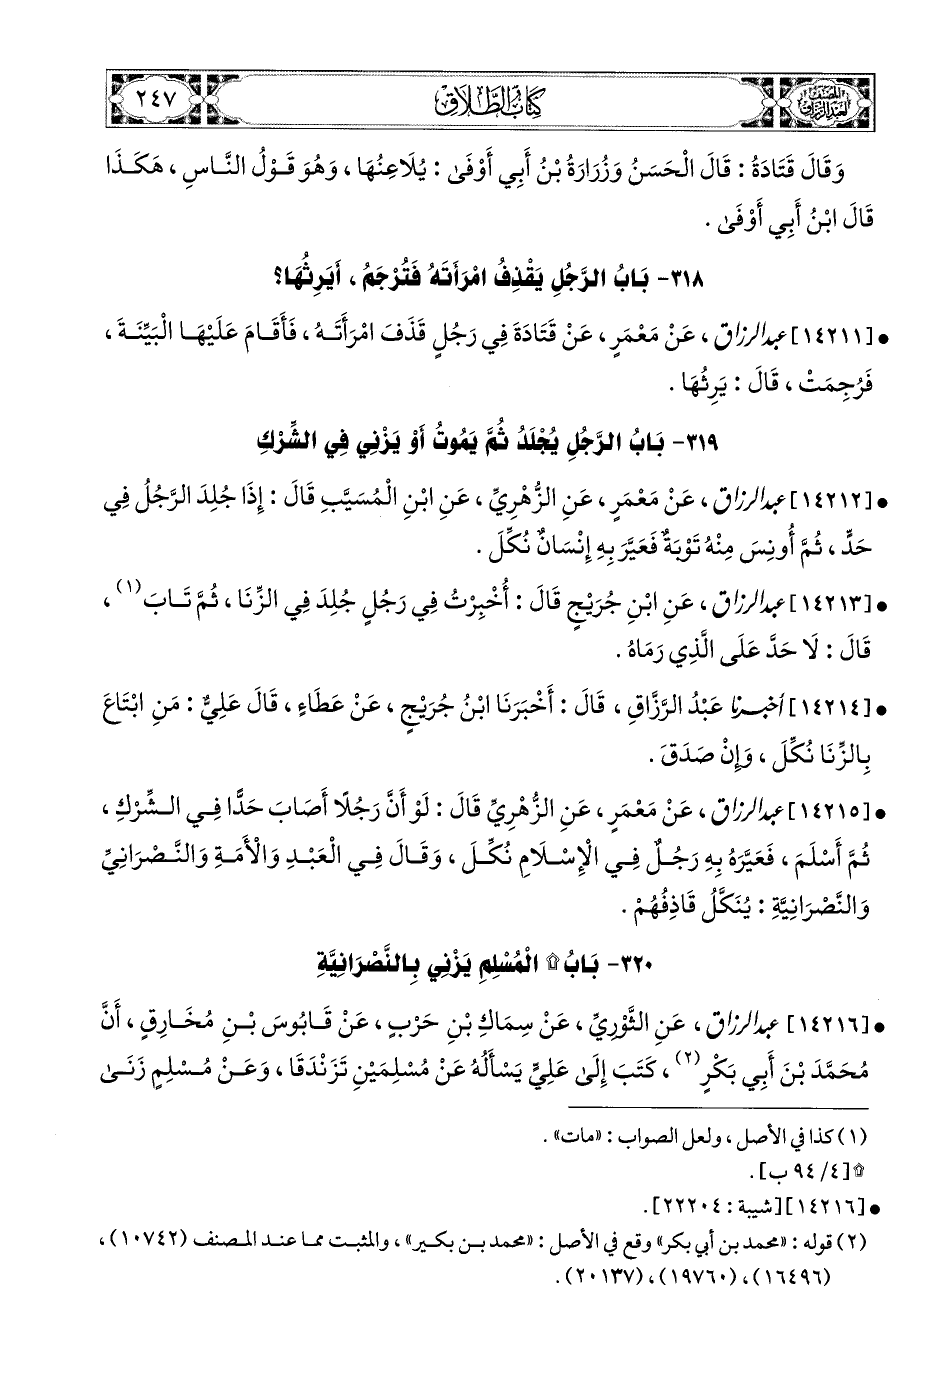 المصنف لعبد الرزاق
كتاب الطلاق
٢٤٧
وَقَالَ قَتَادَةُ : قَالَ الْحَسَنُ وَزُرَارَةُ بْنُ أَبِي أَوْفَىٰ : يُلَاعِنُهَا ، وَهُوَ قَوْلُ النَّاسِ ، هَكَذَا
قَالَ ابْنُ أَبِي أَوْفَىٰ .
٣١٨- بَابُ الرَّجُلِ يَقْذِفُ امْرَأَتَهُ فَتُرْجَمُ ، أَيَرِثُهَا؟
• [١٤٢١١] عبد الرزاق ، عَنْ مَعْمَرٍ ، عَنْ قَتَادَةَ فِي رَجُلٍ قَذَفَ امْرَأَتَهُ ، فَأَقَامَ عَلَيْهَا الْبَيِّنَةَ ،
فَرُجِمَتْ ، قَالَ : يَرِثُهَا .
٣١٩- بَابُ الرَّجُلِ يُجْلَدُ ثُمَّ يَمُوتُ أَوْ يَزْنِي فِي الشِّرْكِ
• [١٤٢١٢] عبد الرزاق ، عَنْ مَعْمَرٍ ، عَنِ الزُّهْرِيِّ ، عَنِ ابْنِ الْمُسَيَّبِ قَالَ : إِذَا جُلِدَ الرَّجُلُ فِي
حَدٍّ ، ثُمَّ أُونِسَ مِنْهُ تَوْبَةٌ فَعَيَّرَ بِهِ إِنْسَانٌ نُكِّلَ .
• [١٤٢١٣] عبد الرزاق ، عَنِ ابْنِ جُرَيْجٍ قَالَ : أُخْبِرْتُ فِي رَجُلٍ جُلِدَ فِي الزِّنَا ، ثُمَّ تَابَ (١) ،
قَالَ : لَا حَدَّ عَلَى الَّذِي رَمَاهُ .
• [١٤٢١٤] أخبرنا عَبْدُ الرَّزَّاقِ ، قَالَ : أَخْبَرَنَا ابْنُ جُرَيْجٍ ، عَنْ عَطَاءٍ ، قَالَ عَلِيٌّ : مَنِ ابْتَاعَ
بِالزِّنَا نُكِّلَ ، وَإِنْ صَدَقَ .
• [١٤٢١٥] عبد الرزاق ، عَنْ مَعْمَرٍ ، عَنِ الزُّهْرِيِّ قَالَ : لَوْ أَنَّ رَجُلًا أَصَابَ حَدًّا فِي الشِّرْكِ ،
ثُمَّ أَسْلَمَ ، فَعَيَّرَهُ بِهِ رَجُلٌ فِي الْإِسْلَامِ نُكِّلَ ، وَقَالَ فِي الْعَبْدِ وَالْأَمَةِ وَالنَّصْرَانِيِّ
وَالنَّصْرَانِيَّةِ : يُنَكَّلُ قَاذِفُهُمْ .
٣٢٠- بَابُ ۩ الْمُسْلِمِ يَزْنِي بِالنَّصْرَانِيَّةِ
• [١٤٢١٦] عبد الرزاق ، عَنِ الثَّوْرِيِّ ، عَنْ سِمَاكِ بْنِ حَرْبٍ ، عَنْ قَابُوسَ بْنِ مُخَارِقٍ ، أَنَّ
مُحَمَّدَ بْنَ أَبِي بَكْرٍ (٢) ، كَتَبَ إِلَىٰ عَلِيٍّ يَسْأَلُهُ عَنْ مُسْلِمَيْنِ تَزَنْدَقَا ، وَعَنْ مُسْلِمٍ زَنَىٰ
(١) كذا في الأصل ، ولعل الصواب : «مات» .
۩ [٤/ ٩٤ ب] .
• [١٤٢١٦] [شيبة : ٢٢٢٠٤] .
(٢) قوله : «محمد بن أبي بكر» وقع في الأصل : «محمد بن بكير» ، والمثبت مما عند المصنف (١٠٧٤٢) ،
(١٦٤٩٦) ، (١٩٧٦٠) ، (٢٠١٣٧) .